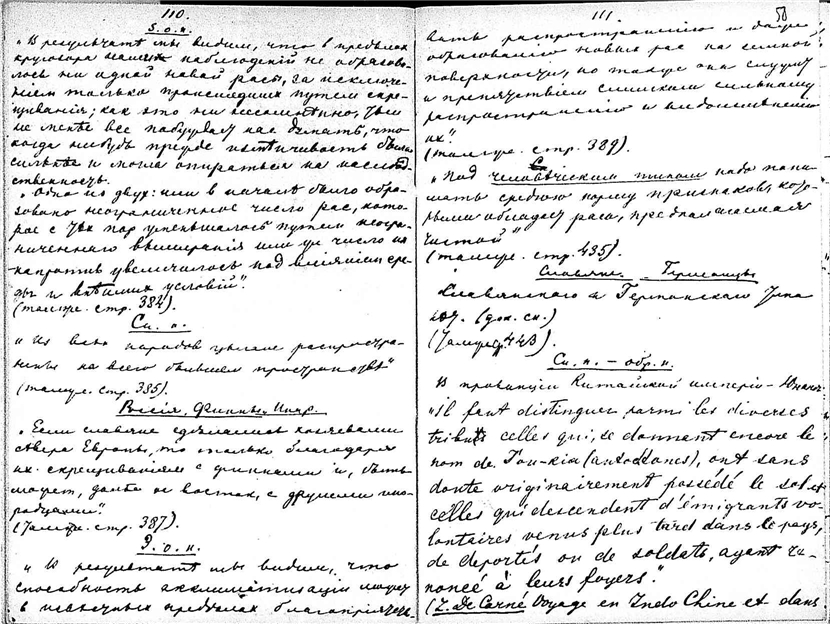 110.
З. о. н.
„В результате мы видим, что в пределах
кругозора наших наблюдений не образова-
лось ни одной новой расы, за исключе-
нием только происшедших путем скре-
щивания; как это ни несомненно, тѣм
не менѣе все побуждает нас думать, что
когда нибудь прежде измѣнчивость была
сильнѣе и могла опираться на наслѣд-
ственность.
„Одно из двух: или в началѣ было обра-
зовано неограниченное число рас, кото-
рое с тѣх пор уменьшалось путем неогра-
ниченнаго вымирания или же число их
напротив увеличилось под влиянием сре-
ды и внѣшних условий".
(там же. стр. 384).
Сл. н.
„Из всѣх народов
на всего бывшем пространстве"
(там же. стр. 385).
Россія, Финны, Инор.
„Если славяне сдѣлались кочевыми
сѣвера Европы, то только благодаря
их скрещиванием с финнами и, быть
может, далѣе на восток, с другими ино-
родцами".
(Там же. стр. 387).
З. о. н.
„В результатѣ мы видим, что
способность акклиматизации может
в известных пределах благоприятство-
111. 50
вать распространению и даже
образованию новых рас на земной
поверхности, но также она служит
и препятствием слишком сильному
распространению и видоизменению
их".
(там же. стр. 389).
„Под человѣческим типом надо пони-
мать среднюю норму признаков, кото-
рыми обладает раса, предполагаемая
чистой"
(там же. стр. 435).
Славяне. Германцы
Славянского и Германского типа
(доп. сл.)
(Там же 443).
Сл. н. – обр. н.
В провинции Китайской империи – Юнань
„Il faut distinguer parmi les diverses
tribus celles qui, se donnant encore le
nom de Tou-kia (autochtones), ont sans
doute originairement possédé le sol et
celles qui descendent d'émigrants vo-
lontaires venus plus tard dans le pays,
de déportés ou de soldats, ayant re-
noncé à leurs foyers."
(L. De Carné Voyage en Indo Chine et dans